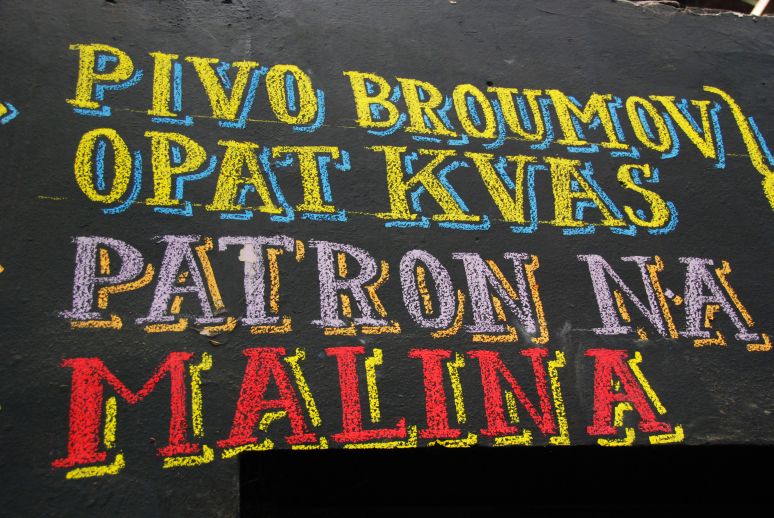 PIVO BROUMOV
OPAT KVAS
PATRON NA
MALINA